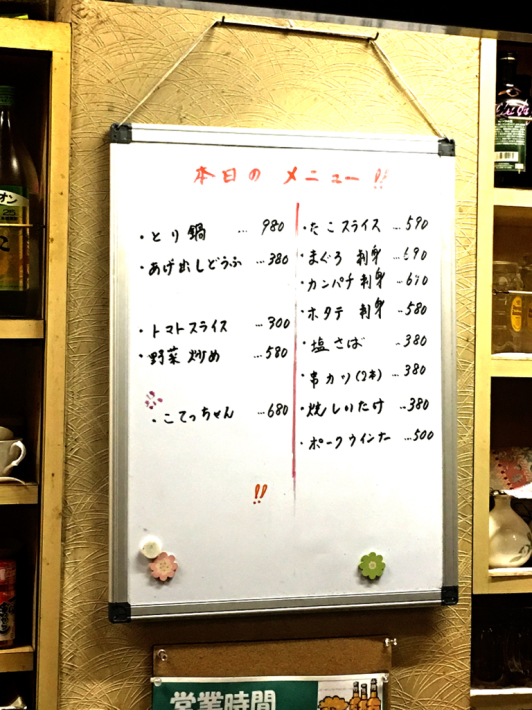 本日の メニュー !!
・とり鍋 … 980
・あげ出しどうふ …380
・トマトスライス …300
・野菜炒め …580
・こてっちゃん …680
!!
・たこスライス …590
・まぐろ 刺身 …690
・カンパチ刺身 …670
・ホタテ 刺身 …580
・塩さば …380
・串カツ(2本) …380
・焼しいたけ …380
・ポークウインナー …500
営業時間